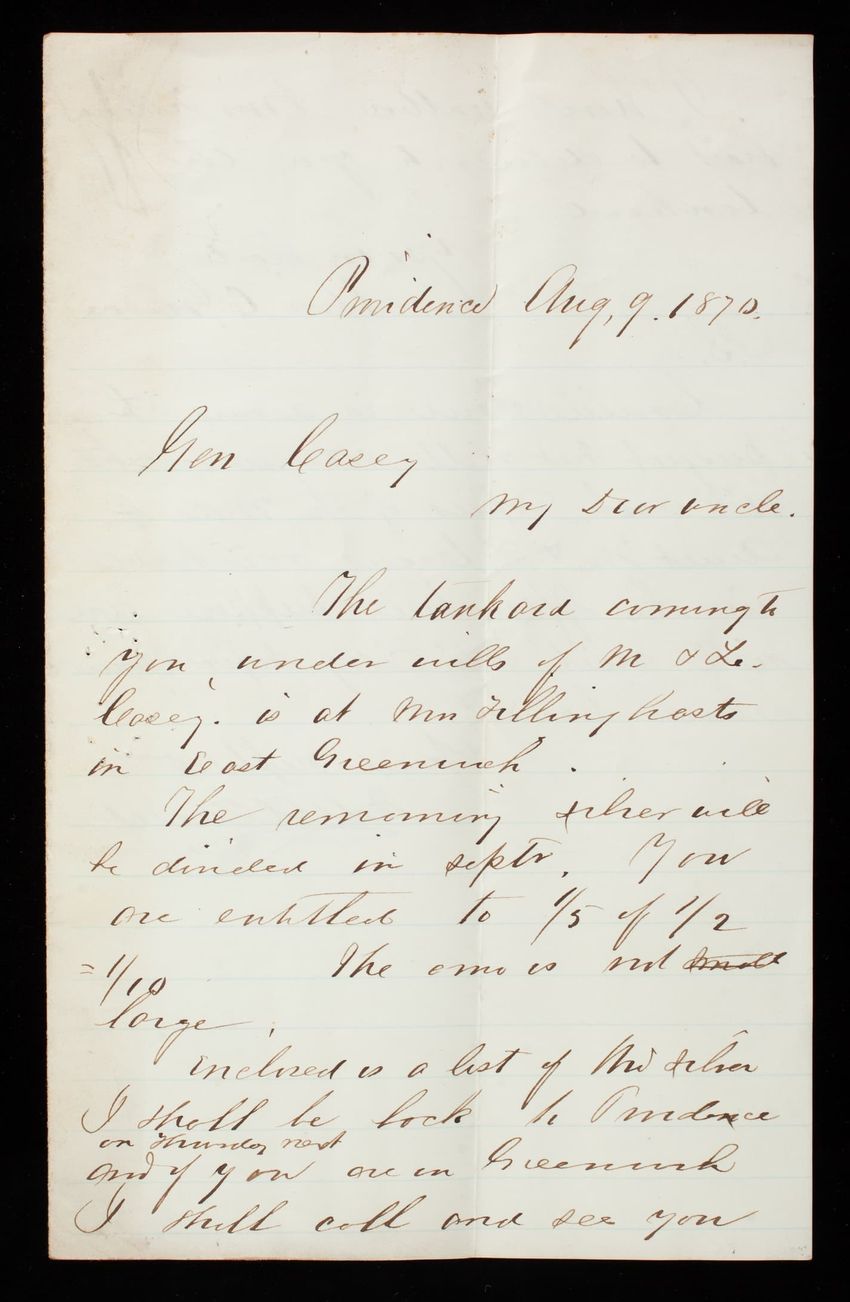 Providence Aug, 9. 1870.
Gen Casey
My Dear uncle.
The tankard coming to
you, under wills of M & L.
Casey. is at Mrs Tillinghasts
in East Greenwich.
The remaining silver will
be divided in septr. You
are entitled to 1/5 of 1/2
= 1/10 The amo is not small
large.
Enclosed is a list of the silver
I shall be back to Providence
on Thursday next
and if you are in Greenwich
I shall call and see you